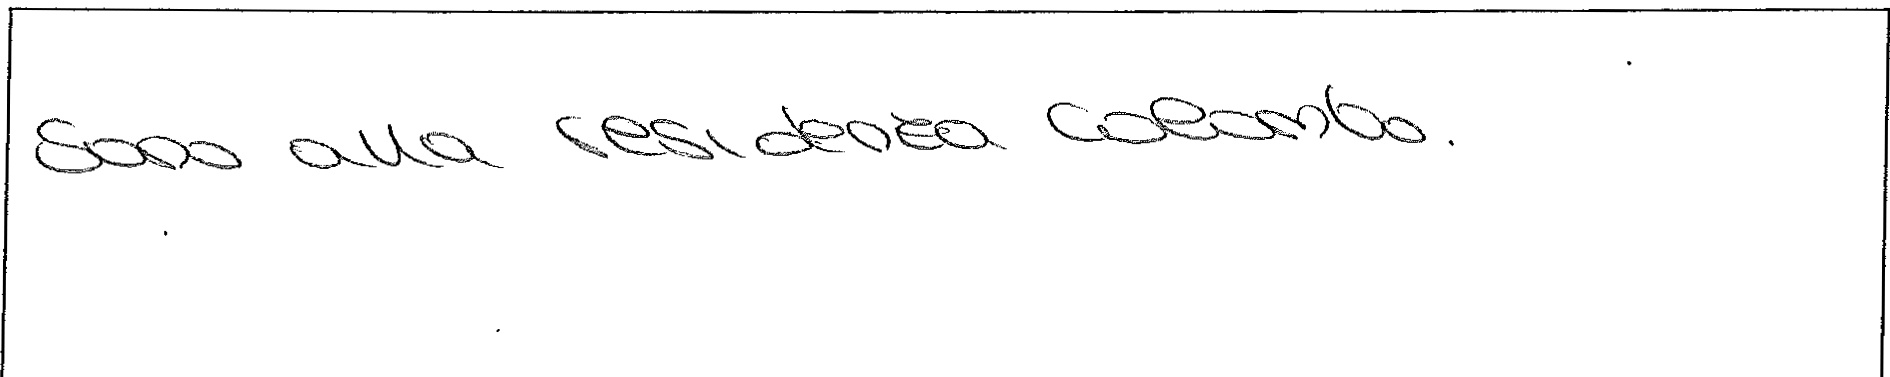 Sono alla residenza Colombo.